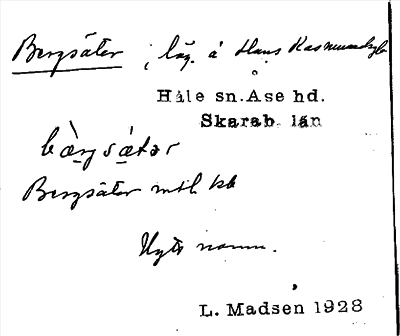 Bergsäter, läg. å Hans Rasmus
Håle sn. Åse hd.
Skarab. län
bærgsǽtər
Bergsäter mtl
Nytt namn.
L. Madsen 1928